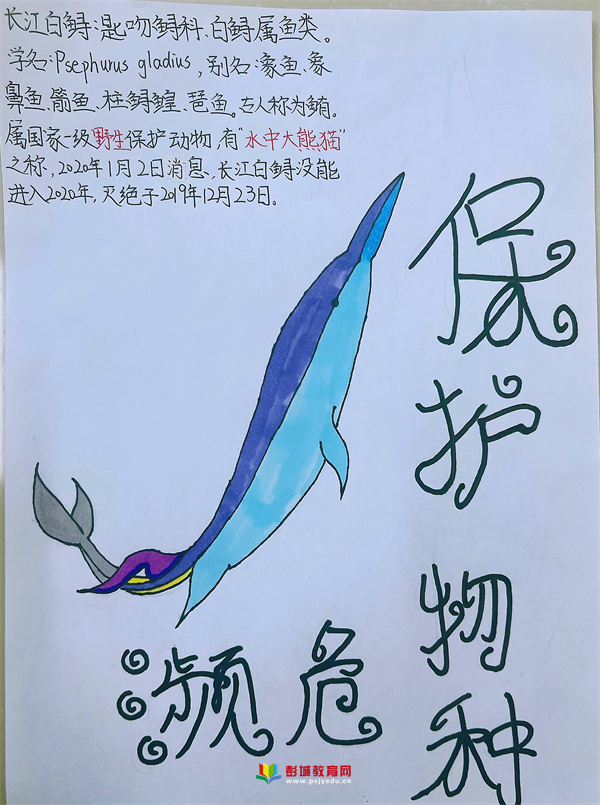 长江白鲟:匙吻鲟科、白鲟属鱼类。
学名:Psephurus gladius,别名:象鱼、象
鼻鱼、箭鱼、柱鲟鳇、琵鱼。古人称为鲔。
属国家一级野生保护动物,有"水中大熊猫"
之称,2020年1月2日消息,长江白鲟没能
进入2020年,灭绝于2019年12月23日。
保护
濒危
物种
彭城教育网
www.pcjyedu.cn